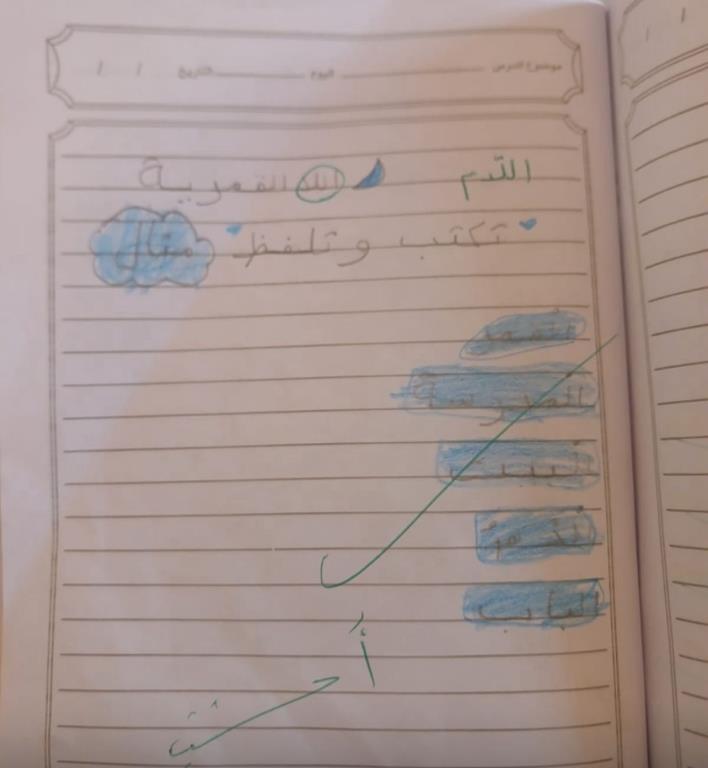 موضوع الدرس اليوم التاريخ / /
اللام
اللا القمرية
تكتب وتلفظ مثال
القمر
المدرسة
البيت
الباب
أحسنت